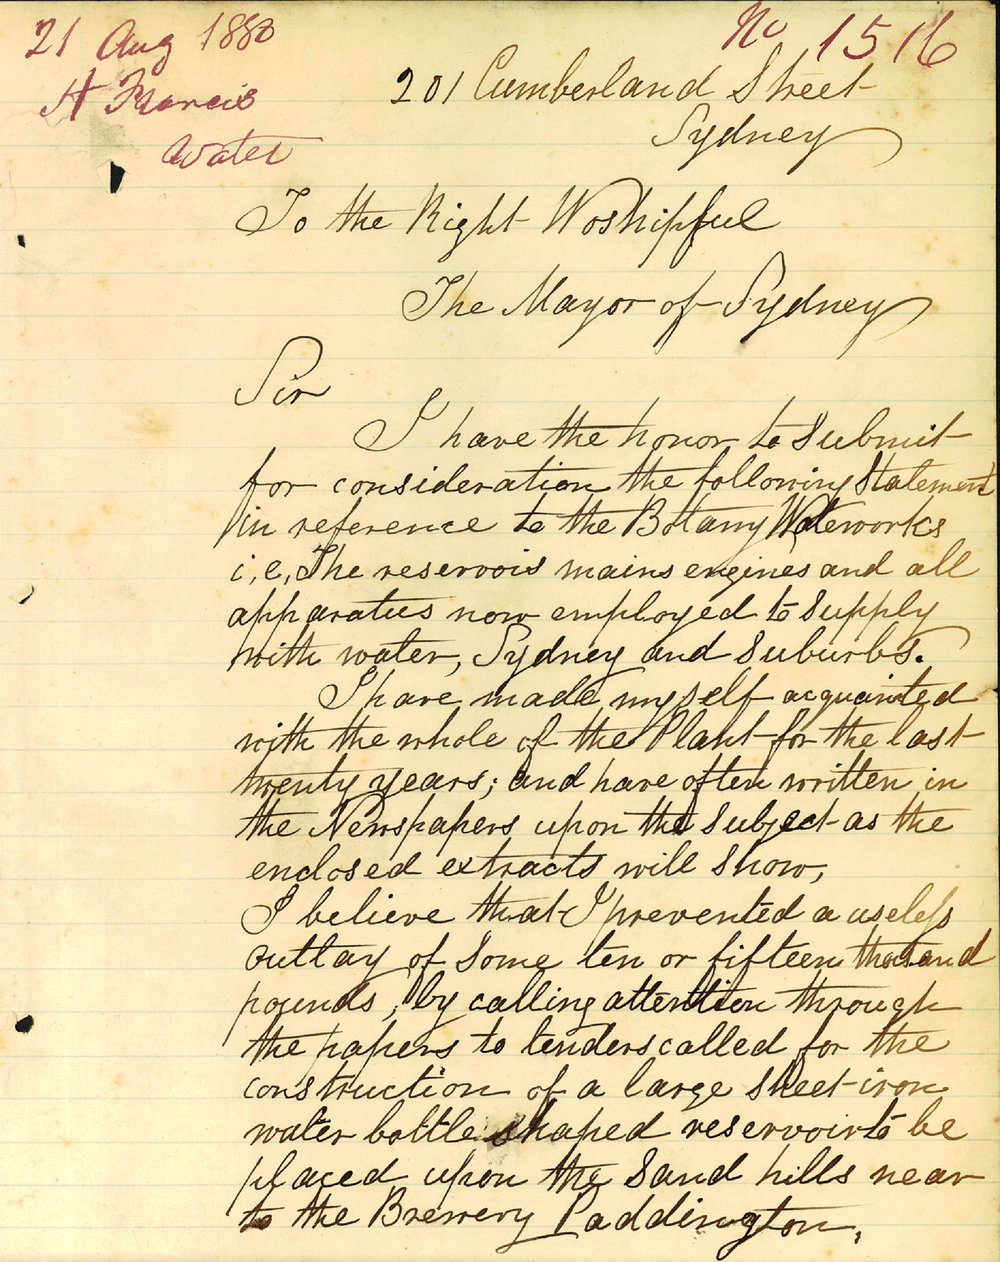 21 Aug 1880
No 1516
H Francis
Water
201 Cumberland Street
Sydney
To the Right Woshipful
The Mayor of Sydney
Sir
I have the honor to submit
for consideration the following Statement
in reference to the Botany Wateworks
i,e, The reservois mains engines and all
apparatus now employed to supply
with water, Sydney and suburbs.
I have made myself acquainted
with the whole of the Plant for the last
twenty years; and have often written in
the Newspapers upon the subject as the
enclosed extracts will show,
I believe that I prevented a useless
outlay of some ten or fifteen thousand
pounds, by calling attention through
the papers to tenders called for the
construction of a large sheet-iron
water bottle shaped reservoir to be
placed upon the sand hills near
to the Brewery Paddington,